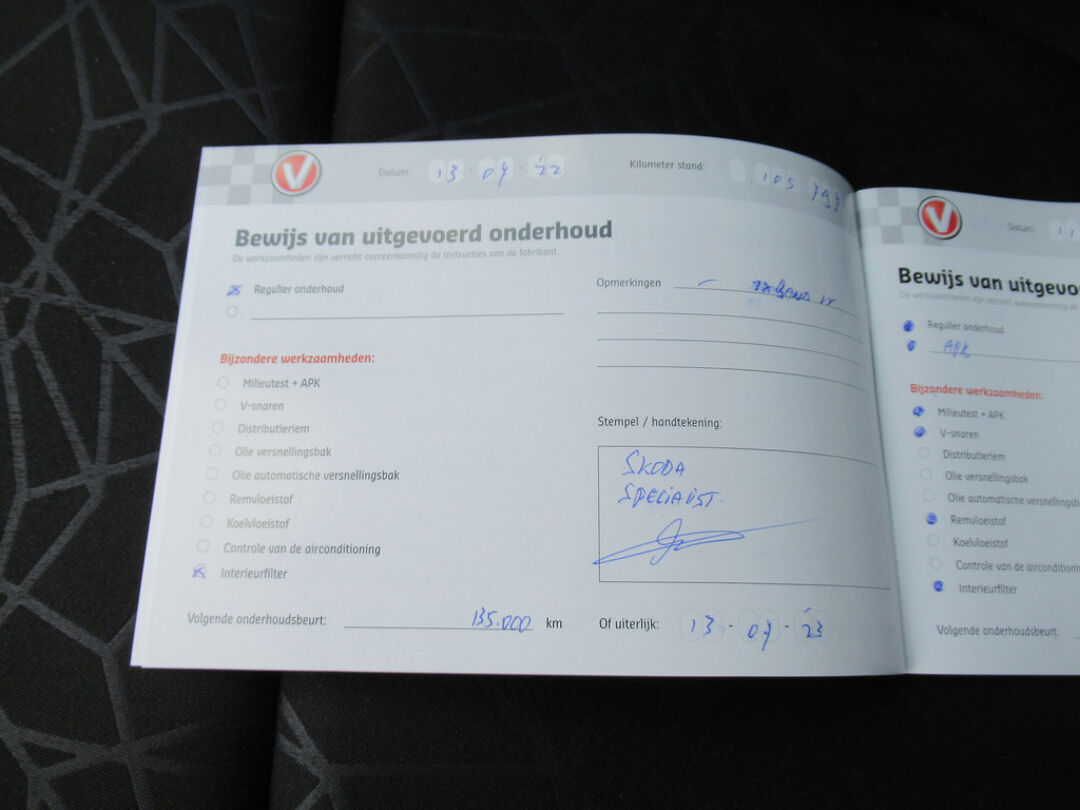 V
Datum: 13 - 04 - 22
Kilometer stand: 105.797
Bewijs van uitgevoerd onderhoud
De werkzaamheden zijn verricht overeenkomstig de instructies van de fabrikant.
Regulier onderhoud
Bijzondere werkzaamheden:
Milieutest + APK
V-snaren
Distributieriem
Olie versnellingsbak
Olie automatische versnellingsbak
Remvloeistof
Koelvloeistof
Controle van de airconditioning
Interieurfilter
Volgende onderhoudsbeurt: 135.000 km
Opmerkingen
Stempel / handtekening:
SKODA
SPECIALIST.
Of uiterlijk: 13 - 04 - 23
V
Datum: 11
Bewijs van uitgevo
De werkzaamheden zijn verricht overeenkomstig de
Regulier onderhoud
APK
Bijzondere werkzaamheden:
Milieutest + APK
V-snaren
Distributieriem
Olie versnellingsbak
Olie automatische versnellingsb
Remvloeistof
Koelvloeistof
Controle van de airconditionin
Interieurfilter
Volgende onderhoudsbeurt: